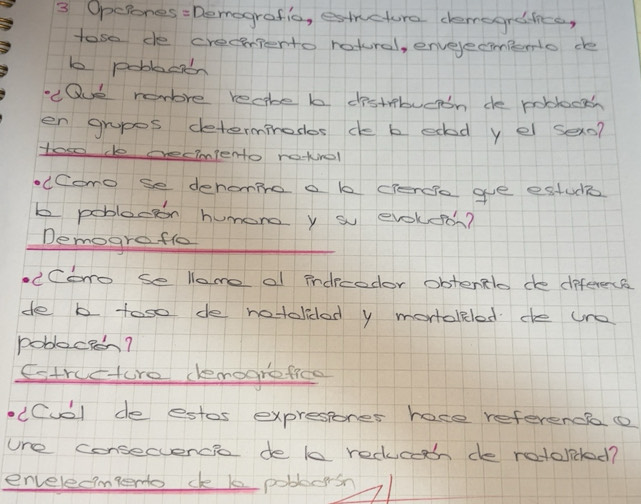 3 Opciones = Demografía, estructura demográfica,
tasa de crecimiento natural, envejecimiento de
la población
• ¿Qué nombre recibe la distribución de población
en grupos determinados de la edad y el sexo?
tasa de crecimiento natural
• ¿Como se denomina a la ciencia que estudia
la población humana y su evolución?
Demografía
• ¿Cómo se llama al indicador obtenido de diferencia
de la tasa de natalidad y mortalidad de una
población?
Estructura demográfica
• ¿Cuál de estas expresiones hace referencia a
una consecuencia de la reducción de natalidad?
envejecimiento de la población